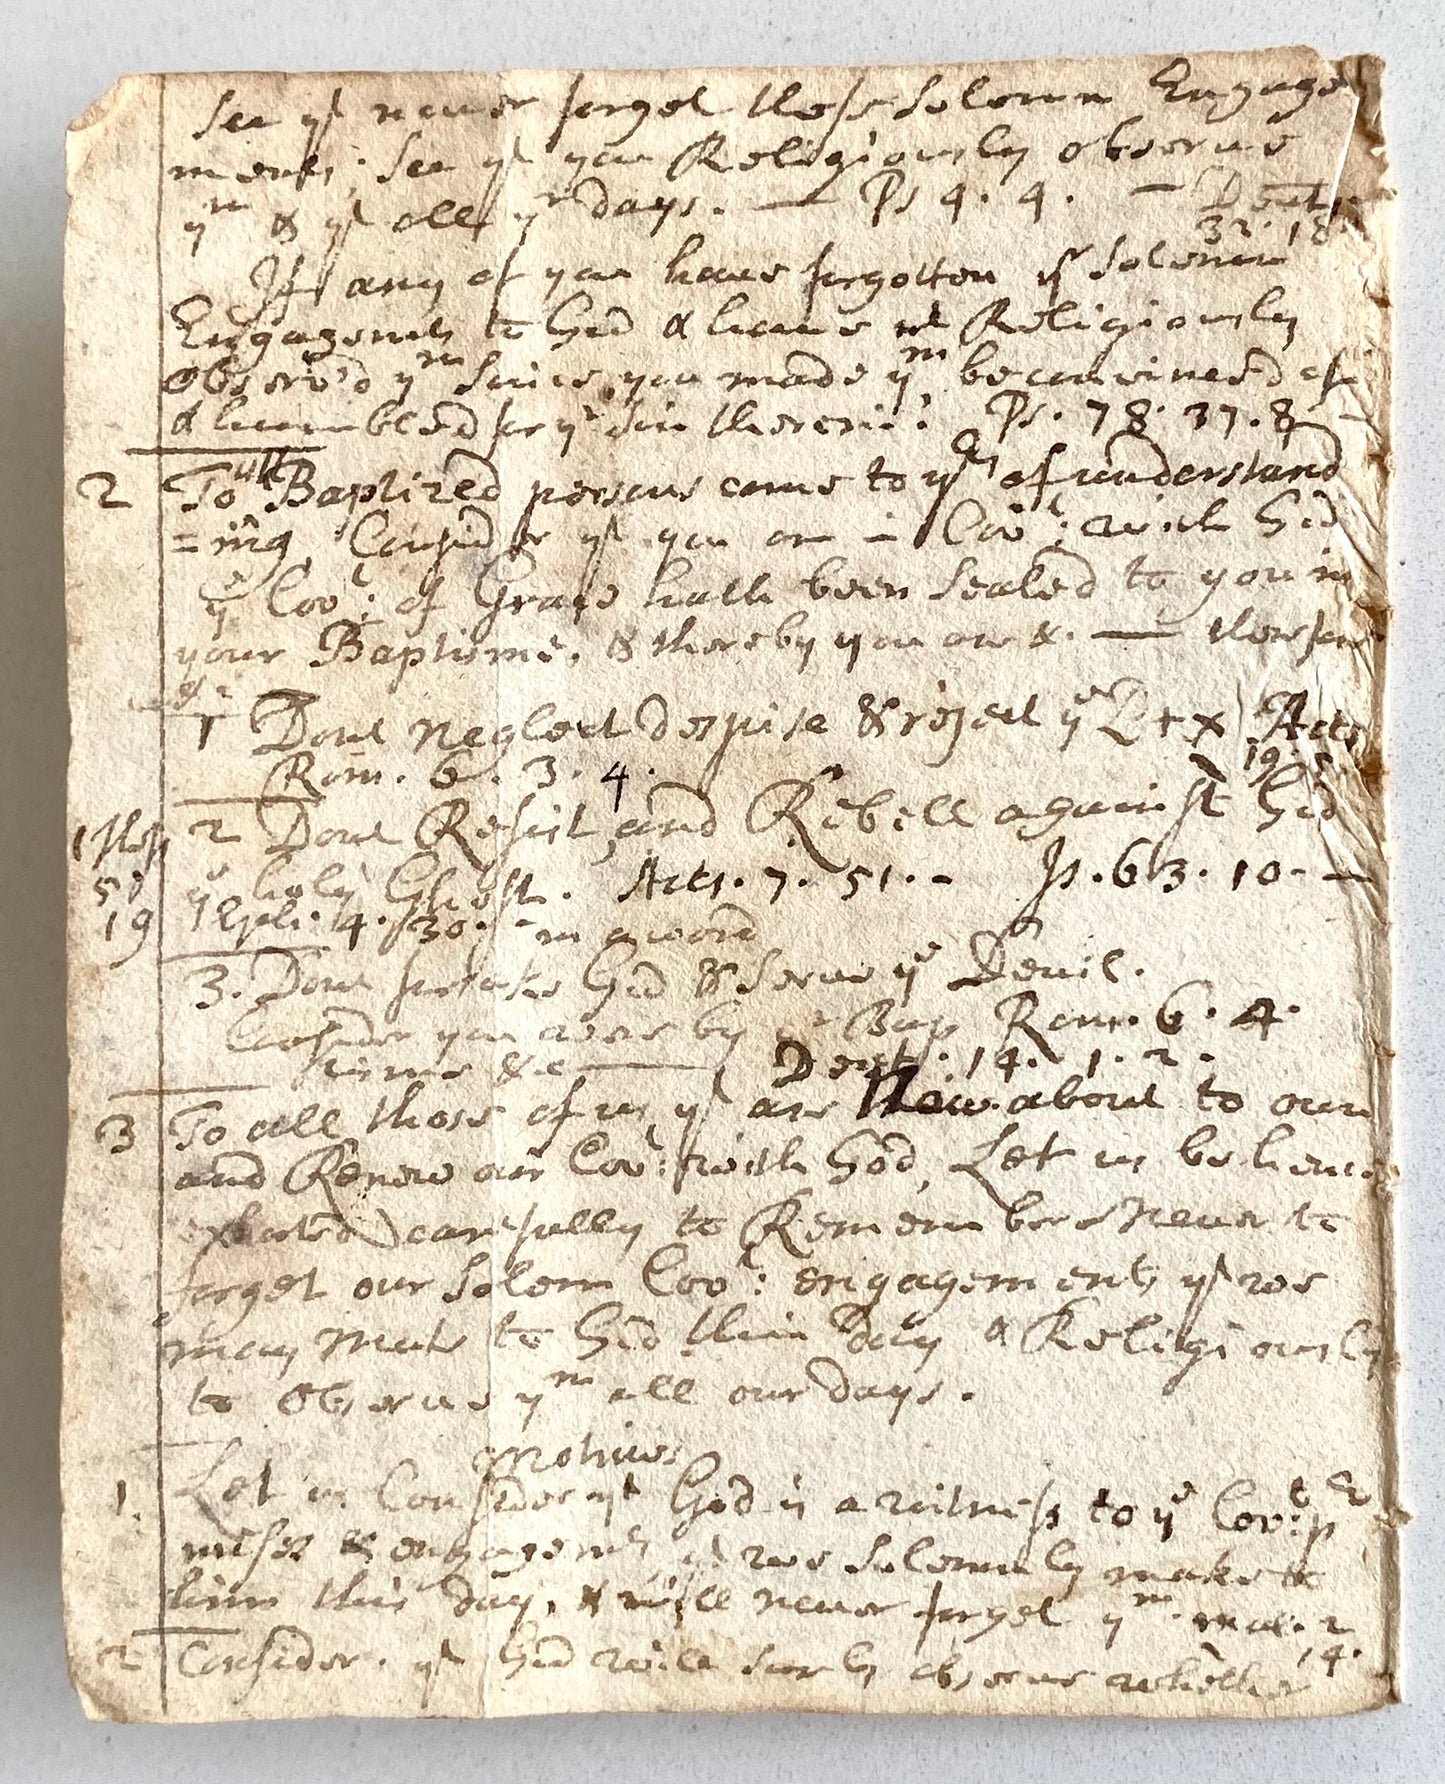 See yt never forget these Solemn Engage
ments; See yt you Religiously observe
ym & yt all yr days. — Ps 4. 4. — Deut.
32. 18.
If any of you have forgotten yr Solemn
Engagemts to God & have not Religiously
observ'd ym since you made ym be convinced of
& humbled for yr Sin therein. Ps. 78. 37. 8 —
2 To all Baptized persons come to yrs of understand
=ing, Consider yt you are in Covt: with God
ye Covt: of Grace hath been Sealed to you in
your Baptisme. & thereby you are &. — therefore
1 Dont neglect despise & reject ye Acts
Rom. 6. 3. 4. 19. 5
2 Dont Resist, and Rebell against God
1 Thes ye holy Ghost. Acts. 7. 51. - Is. 63. 10. —
5: Eph. 4. 30. - in a word
19
3. Dont forsake God & Serve ye Devil.
Consider you were by yr Bap Rom. 6. 4.
tisme &c — Deut: 14. 1. 2.
3 To all those of us yt are Now about to own
and Renew our Covt: with God, Let us be hence
exhorted carefully to Remember & Never to
forget our Solem Covt: engagements yt we
may make to God this Day & Religiously
to Observe ym all our days.
Motives
1. Let us Consider yt God is a witness to ye Covt: pr
mises & engagemts yt we solemnly make to
him this day, & will never forget ym. Mal. 2
14.
2 Consider. yt God will surely observe whether